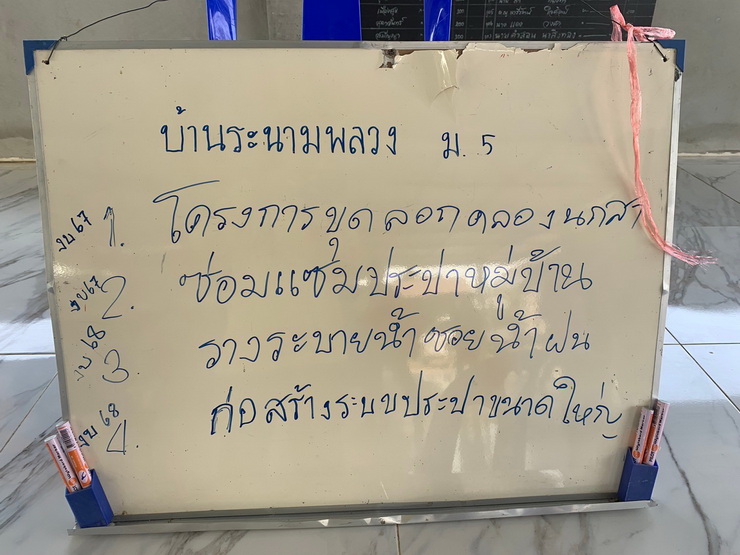 บ้านระนามพลวง ม. 5
งบ67 1. โครงการขุดลอกคลองนกสา
งบ67 2. ซ่อมแซ่มประปาหมู่บ้าน
งบ68 3 รางระบายน้ำซอยน้ำฝน
งบ68 4. ก่อสร้างระบบประปาขนาดใหญ่